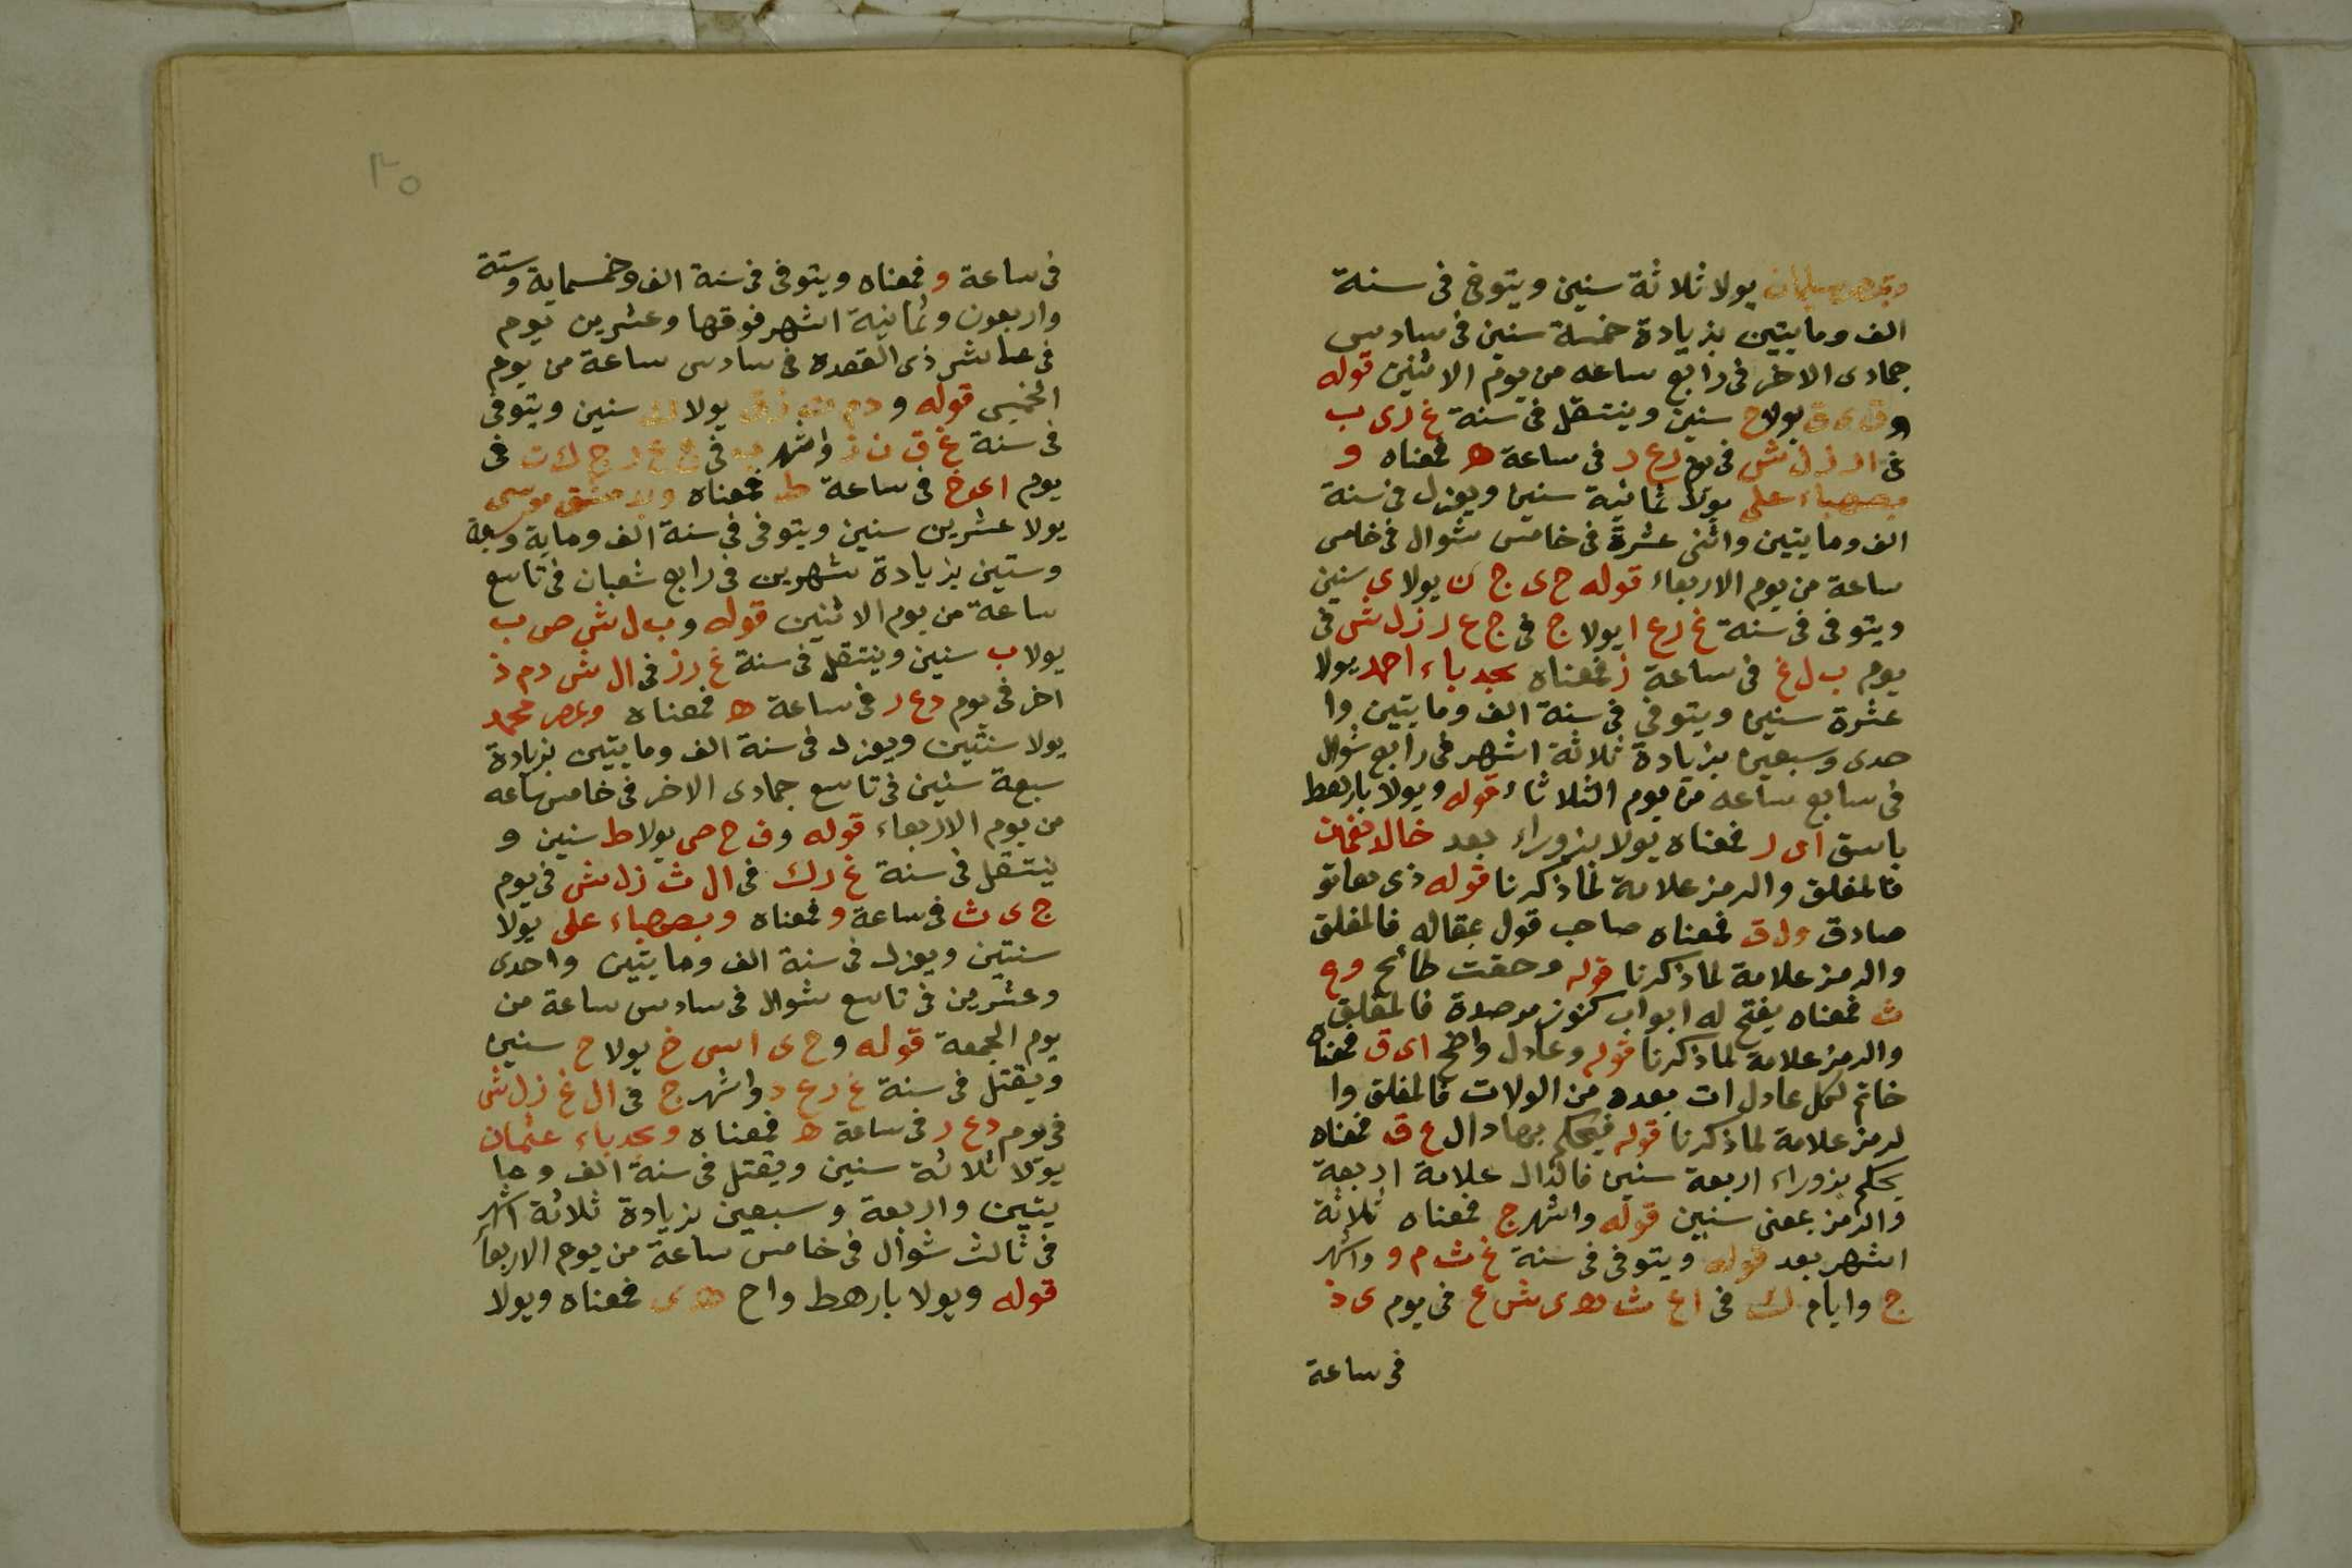 يولا ثلاثة سنين ويتوفى فى سنة
الف ومايتين بزيادة خمسة سنين فى سادس
جمادى الاخر فى رابع ساعه من يوم الاثنين قوله
يولاح سنين وينتقل فى سنة غ ر ى ب
فى ال ز ل ش فى يوم د ع ر فى ساعة ه فمعناه و
بصهباء على يولا ثمانية سنين ويعزل فى سنة
الف ومايتين واثنى عشرة فى خامس شوال فى خامس
ساعة من يوم الاربعاء قوله ح ى ج ن يولا ى سنين
ويتوفى فى سنة غ ر ع ا يولا ج فى ج ع ر ز ل ش فى
يوم ب ل غ فى ساعة ز فمعناه بجدباء احمد يولا
عشرة سنين ويتوفى فى سنة الف ومايتين وا
حدى وسبعين بزيادة ثلاثة اشهر فى رابع شوال
فى سابع ساعه من يوم الثلاثاء قوله ويولا بارهط
باسق اى ر فمعناه يولا بزوراء بعد خالد نعمان
فالمغلق والرمز علامة لما ذكرنا قوله ذى
صادق ول ق فمعناه صاحب قول بمقاله فالمغلق
والرمز علامة لما ذكرنا قوله وحقت طائح وع
ث فمعناه يفتح له ابواب كنوز مرصدة فالمغلق
والرمز علامة لما ذكرنا قوله وعادل واضح اى ق فمعناه
خاتم لكل عادل ات بعده من الولات فالمغلق وا
لرمز علامة لما ذكرنا قوله فيحكم بها دال ع ق فمعناه
يحكم بزوراء اربعة سنين فالدال علامة اربعة
والرمز بمعنى سنين قوله واشهر ج فمعناه ثلاثة
اشهر بعد قوله ويتوفى فى سنة غ ث م و واشهر
ج وايام ك فى ا ع ث ه ى ش ع فى يوم ى ذ
فى ساعة
٣٥
فى ساعة و فمعناه ويتوفى فى سنة الف وخمسماية وستة
واربعون وثمانية اشهر فوقها وعشرين يوم
فى عاشر ذى القعده فى سادس ساعة من يوم
الخميس قوله و يولا ك سنين ويتوفى
فى سنة غ ق ن ز واشهر فى
يوم فى ساعة ط فمعناه موسى
يولا عشرين سنين ويتوفى فى سنة الف وماية وسبعة
وستين بزيادة شهرين فى رابع شعبان فى تاسع
ساعة من يوم الاثنين قوله و ب ل ش ص ب
يولا ب سنين وينتقل فى سنة غ ر ز فى ال ش د م ذ
اخر فى يوم د ع ر فى ساعة ه فمعناه وبمصر محمد
يولا سنتين ويعزل فى سنة الف ومايتين بزيادة
سبعة سنين فى تاسع جمادى الاخر فى خامس ساعه
من يوم الاربعاء قوله وف ح ص يولا ط سنين و
ينتقل فى سنة غ ر ك فى ال ث ز ل ش فى يوم
ج ى ث فى ساعة و فمعناه وبصهباء على يولا
سنتين ويعزل فى سنة الف ومايتين واحدى
وعشرين فى تاسع شوال فى سادس ساعة من
يوم الجمعة قوله وح ى اس خ يولا ح سنين
ويقتل فى سنة غ ر ع د واشهر ج فى ال غ ز ل ش
فى يوم د ع ر فى ساعة ه فمعناه وبجدباء عثمان
يولا ثلاثة سنين ويقتل فى سنة الف وما
يتين واربعة وسبعين بزيادة ثلاثة اشهر
فى ثالث شوال فى خامس ساعة من يوم الاربعا
قوله ويولا بارهط واح ه د ى فمعناه ويولا